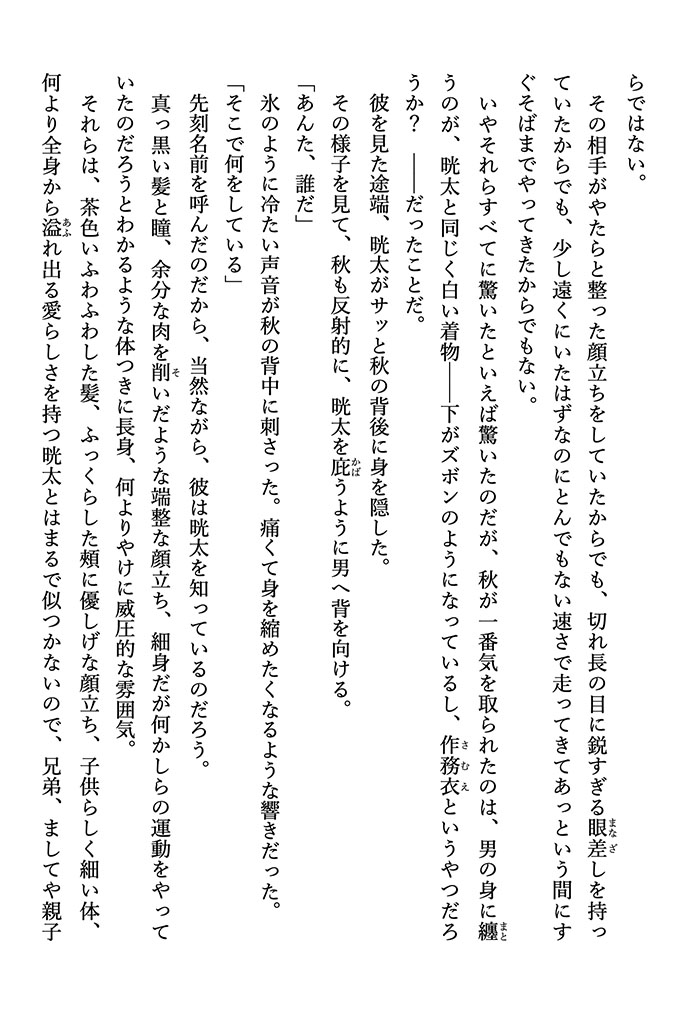 らではない。
　その相手がやたらと整った顔立ちをしていたからでも、切れ長の目に鋭すぎる眼差しを持っ
ていたからでも、少し遠くにいたはずなのにとんでもない速さで走ってきてあっという間にす
ぐそばまでやってきたからでもない。
　いやそれらすべてに驚いたといえば驚いたのだが、秋が一番気を取られたのは、男の身に纏
うのが、晄太と同じく白い着物――下がズボンのようになっているし、作務衣というやつだろ
うか？　――だったことだ。
　彼を見た途端、晄太がサッと秋の背後に身を隠した。
　その様子を見て、秋も反射的に、晄太を庇うように男へ背を向ける。
「あんた、誰だ」
　氷のように冷たい声音が秋の背中に刺さった。痛くて身を縮めたくなるような響きだった。
「そこで何をしている」
　先刻名前を呼んだのだから、当然ながら、彼は晄太を知っているのだろう。
　真っ黒い髪と瞳、余分な肉を削いだような端整な顔立ち、細身だが何かしらの運動をやって
いたのだろうとわかるような体つきに長身、何よりやけに威圧的な雰囲気。
　それらは、茶色いふわふわした髪、ふっくらした頰に優しげな顔立ち、子供らしく細い体、
何より全身から溢れ出る愛らしさを持つ晄太とはまるで似つかないので、兄弟、ましてや親子